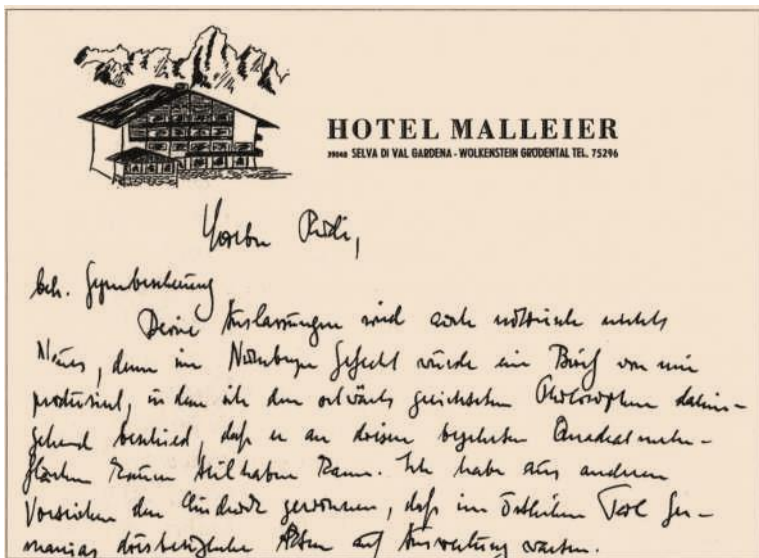 HOTEL MALLEIER
39048 SELVA DI VAL GARDENA - WOLKENSTEIN GRÖDENTAL TEL. 75296
Rudi,
betr.
Deine Auslassungen sind auch nichts
Neues, denn im Nürnberger Gefecht würde ein Brief von mir
produziert, in dem ich den ostwärts gerichteten Philosophen dahin-
gehend beschied, daß er an diesem begehrten Quadratmeter-
teilhaben kann. Ich habe aus anderen
den Eindruck gewonnen, daß im östlichen Teil Ger-
manias diesbezügliche Akten auf Auswertung warten.